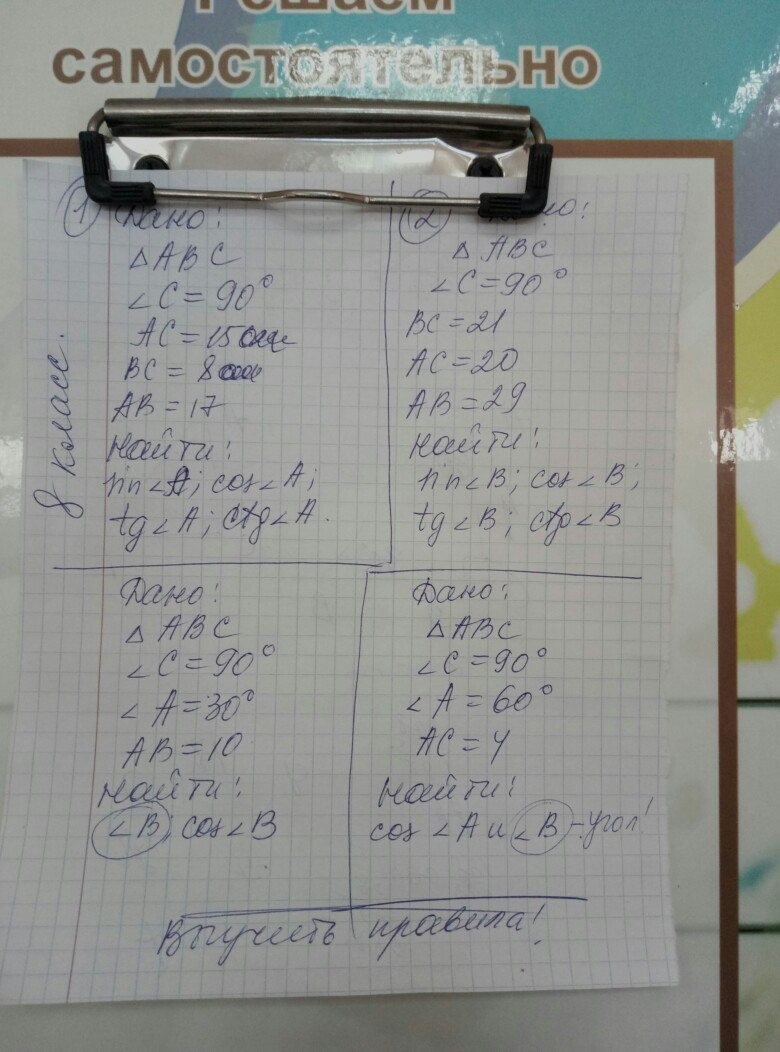 Решаем
самостоятельно
8 класс.
1 Дано:
△ABC
∠C = 90°
AC = 15
BC = 8
AB = 17
Найти:
sin∠A; cos∠A;
tg∠A; ctg∠A.
2 Дано:
△ABC
∠C = 90°
BC = 21
AC = 20
AB = 29
Найти:
sin∠B; cos∠B;
tg∠B; ctg∠B
Дано:
△ABC
∠C = 90°
∠A = 30°
AB = 10
Найти:
∠B; cos∠B
Дано:
△ABC
∠C = 90°
∠A = 60°
AC = 4
Найти:
cos ∠A и ∠B - угол!
Выучить правила!